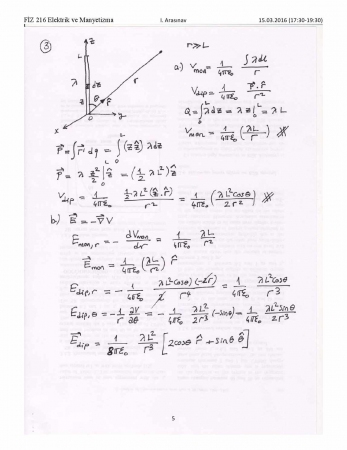 FİZ 216 Elektrik ve Manyetizma I. Arasınav 15.03.2016 (17:30-19:30)
③
z
L
λ
dz
z
θ
r̂
r
0
x
y
r >> L
a) V_mon = 1/(4πε₀) ∫λdl / r
V_dip = 1/(4πε₀) P⃗·r̂ / r²
Q = ∫₀ᴸ λdz = λ z |₀ᴸ = λL
V_mon = 1/(4πε₀) (λL / r)
P⃗ = ∫ r⃗' dq = ∫₀ᴸ (z ẑ) λdz
P⃗ = λ z²/2 |₀ᴸ ẑ = (1/2 λL²) ẑ
V_dip = 1/(4πε₀) 1/2 λL² (ẑ·r̂) / r² = 1/(4πε₀) (λL² cosθ / 2r²)
b) E⃗ = -∇⃗V
E_mon,r = - dV_mon / dr = 1/(4πε₀) λL / r²
E⃗_mon = 1/(4πε₀) (λL / r²) r̂
E_dip,r = - 1/(4πε₀) λL² cosθ (-2r) / 2 r⁴ = 1/(4πε₀) λL² cosθ / r³
E_dip,θ = - 1/r ∂V/∂θ = - 1/(4πε₀) λL² / 2r³ (-sinθ) = 1/(4πε₀) λL² sinθ / 2r³
E⃗_dip = 1/(8πε₀) λL² / r³ [2cosθ r̂ + sinθ θ̂]
5